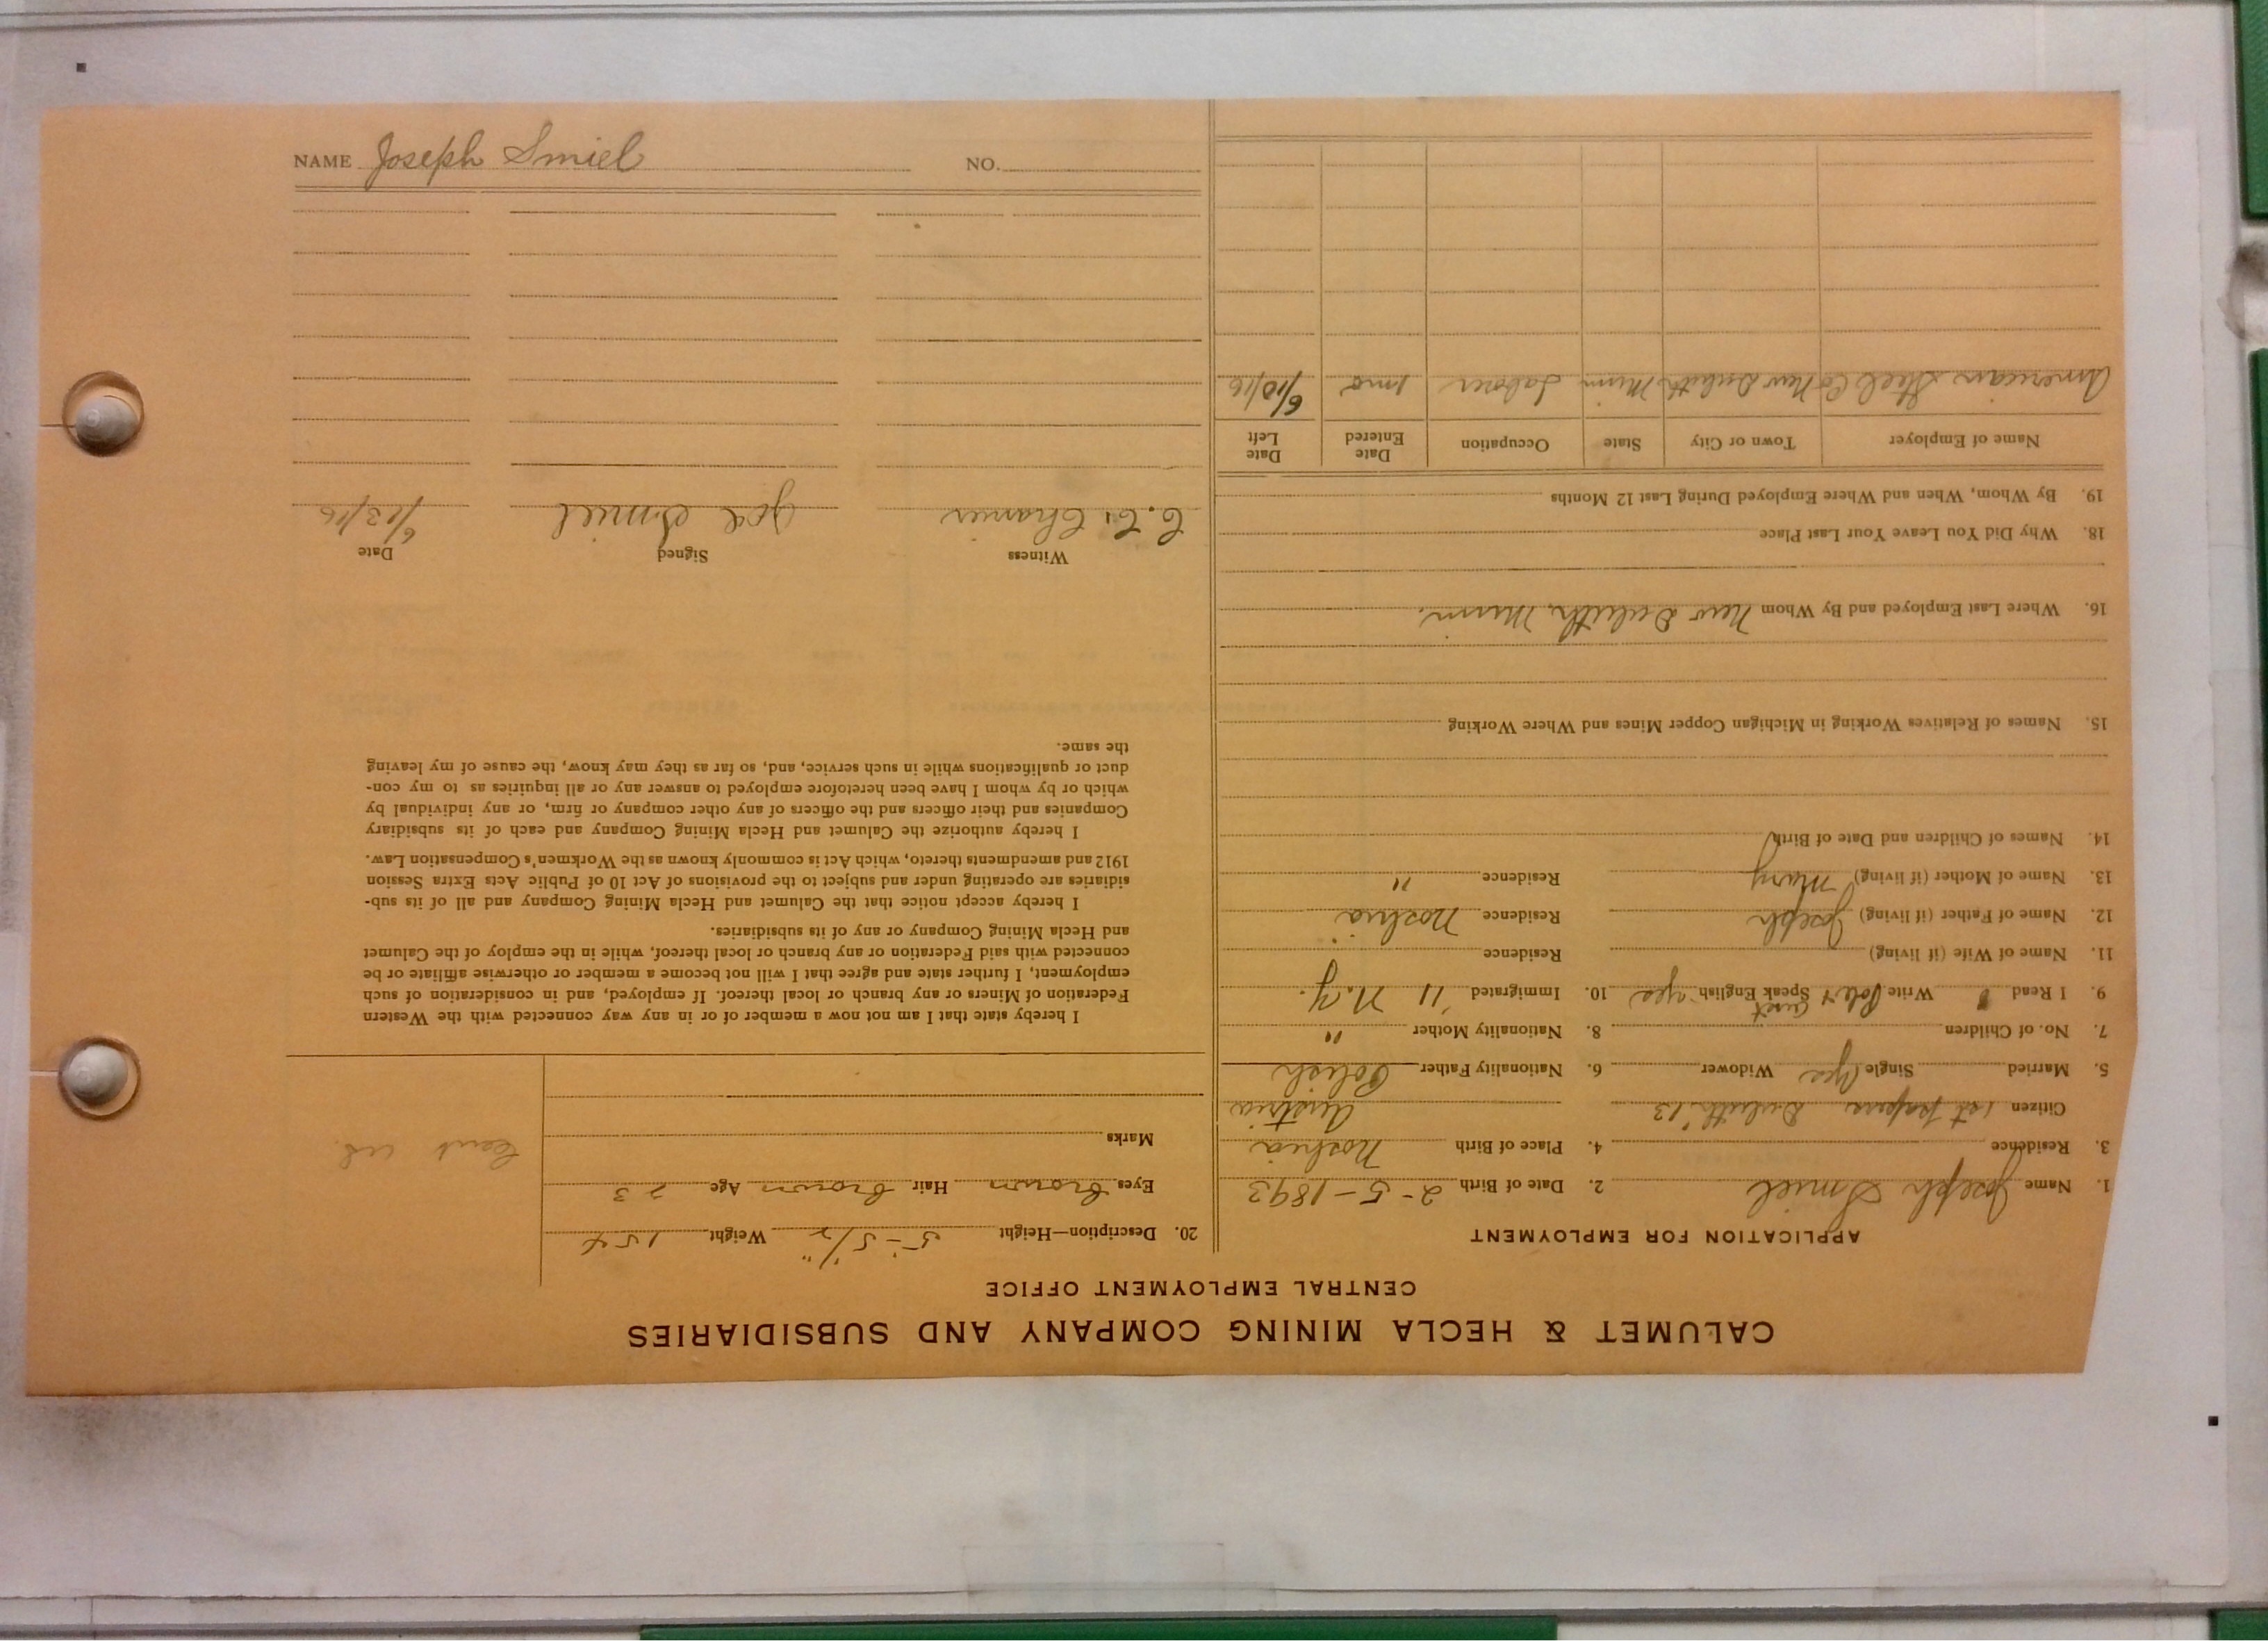 CALUMET & HECLA MINING COMPANY AND SUBSIDIARIES
CENTRAL EMPLOYMENT OFFICE
APPLICATION FOR EMPLOYMENT
1. Name Joseph Smiel 2. Date of Birth 2-5-1893
3. Residence 4. Place of Birth Noshia
Citizen 1st papers Duluth '13 Austria
5. Married Single Yes Widower 6. Nationality Father Polish
7. No. of Children 8. Nationality Mother "
9. I Read Write Pole + Aust Speak English yes 10. Immigrated '11 N.Y.
11. Name of Wife (if living) Residence
12. Name of Father (if living) Joseph Residence Noshia
13. Name of Mother (if living) Mary Residence "
14. Names of Children and Date of Birth
15. Names of Relatives Working in Michigan Copper Mines and Where Working
16. Where Last Employed and By Whom New Duluth Minn.
18. Why Did You Leave Your Last Place
19. By Whom, When and Where Employed During Last 12 Months
Name of Employer Town or City State Occupation Date Entered Date Left
American Steel Co New Duluth Minn Laborer 1 mo 6/10/16
20. Description—Height 5-5 1/2" Weight 154
Eyes brown Hair brown Age 23
Marks
I hereby state that I am not now a member of or in any way connected with the Western
Federation of Miners or any branch or local thereof. If employed, and in consideration of such
employment, I further state and agree that I will not become a member or otherwise affiliate or be
connected with said Federation or any branch or local thereof, while in the employ of the Calumet
and Hecla Mining Company or any of its subsidiaries.
I hereby accept notice that the Calumet and Hecla Mining Company and all of its sub-
sidiaries are operating under and subject to the provisions of Act 10 of Public Acts Extra Session
1912 and amendments thereto, which Act is commonly known as the Workmen's Compensation Law.
I hereby authorize the Calumet and Hecla Mining Company and each of its subsidiary
Companies and their officers and the officers of any other company or firm, or any individual by
which or by whom I have been heretofore employed to answer any or all inquiries as to my con-
duct or qualifications while in such service, and, so far as they may know, the cause of my leaving
the same.
Witness Signed Date
Joe Smiel 6/13/16
NAME Joseph Smiel NO.